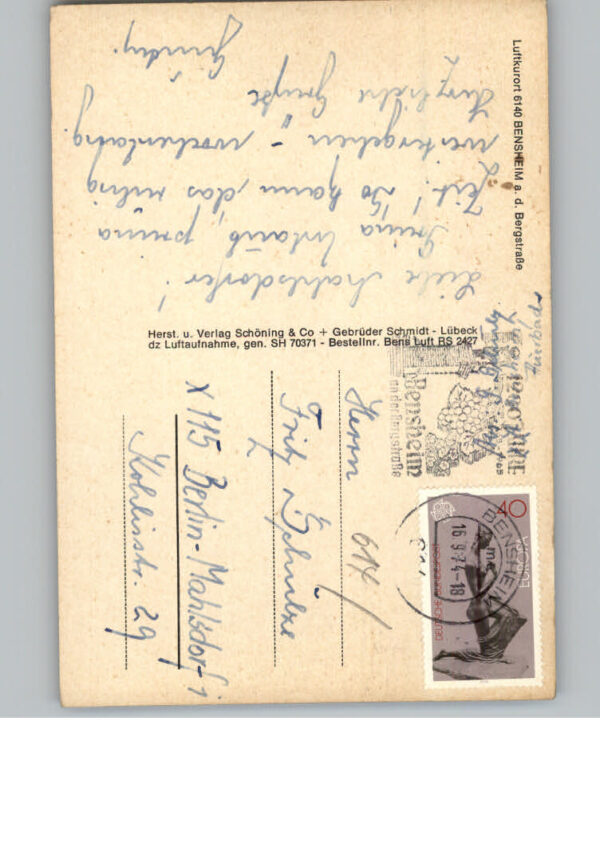 Luftkurort 6140 BENSHEIM a. d. Bergstraße
Liebe Mahlsdorfer!
Prima Urlaub, prima
Zeit! So kann das ruhig
weitergehen - wochenlang
Herzliche Grüße
Herst. u. Verlag Schöning & Co + Gebrüder Schmidt - Lübeck
dz Luftaufnahme, gen. SH 70371 - Bestellnr. Bens Luft RS 2427
Bensheim
an der Bergstraße
BENSHEIM
16.9.74-18
40
EUROPA
DEUTSCHE BUNDESPOST
Herrn
Fritz Schulze
X 115 Berlin-Mahlsdorf
29